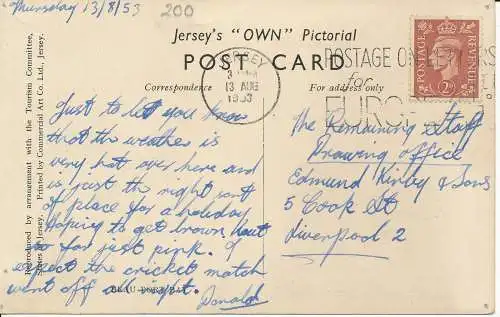 Thursday 13/8/53
200
Jersey's "OWN" Pictorial
POST CARD
Correspondence
For address only
JERSEY
13 AUG
1953
POSTAGE ON LETTERS
for
EURO
POSTAGE
REVENUE
2D
Reproduced by arrangement with the Tourism Committee,
States of Jersey. Printed by Commercial Art Co. Ltd., Jersey.
Just to let you know
that the weather is
very hot over here and
is just the right sort
of place for a holiday
Hoping to get brown, but
so far just pink. I
expect the cricket match
went off all right.
Donald
BEAU PORT BAY
The Remaining Staff
Drawing Office
Edmund Kirby & Sons
5 Cook St
Liverpool 2